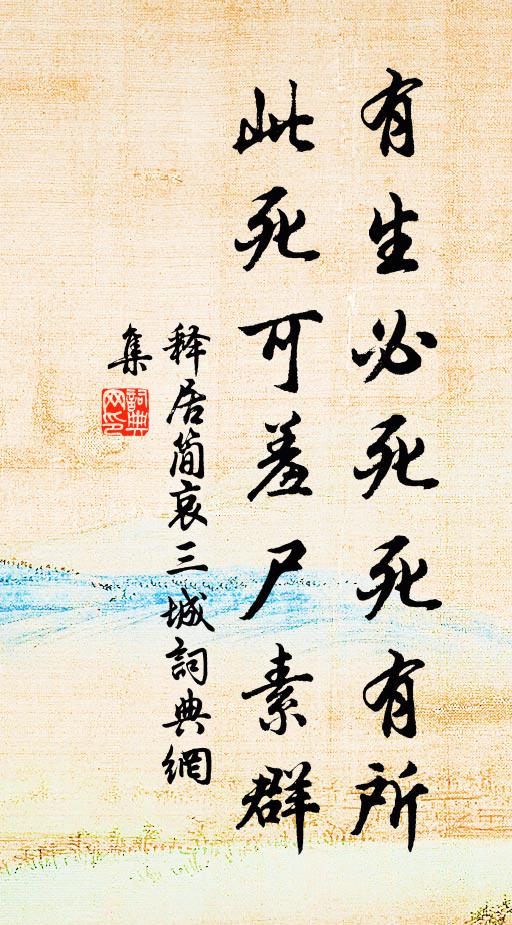 有生必死死有所
此死可羞尸素群
释居简哀三城詞典網
集
詞典
网印